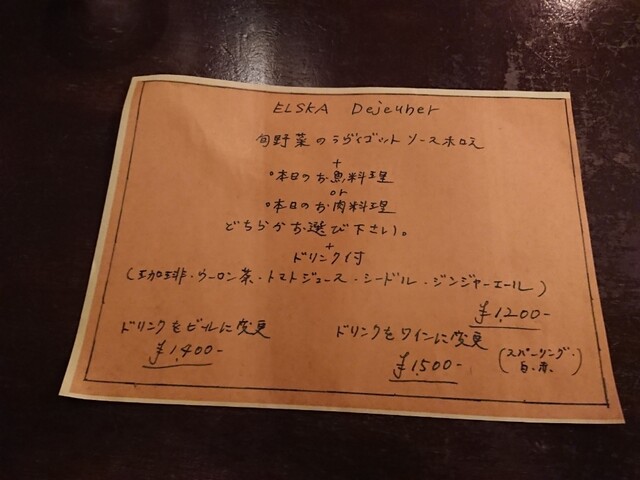 ELSKA Dejeuner
旬野菜のラヴィゴットソースホロス
+
○本日のお魚料理
or
○本日のお肉料理
どちらかお選び下さい。
+
ドリンク付
(珈琲・ウーロン茶・トマトジュース・シードル・ジンジャーエール)
¥1,200-
ドリンクをビールに変更
¥1,400-
ドリンクをワインに変更
¥1,500-
(スパーリング・
白・赤)